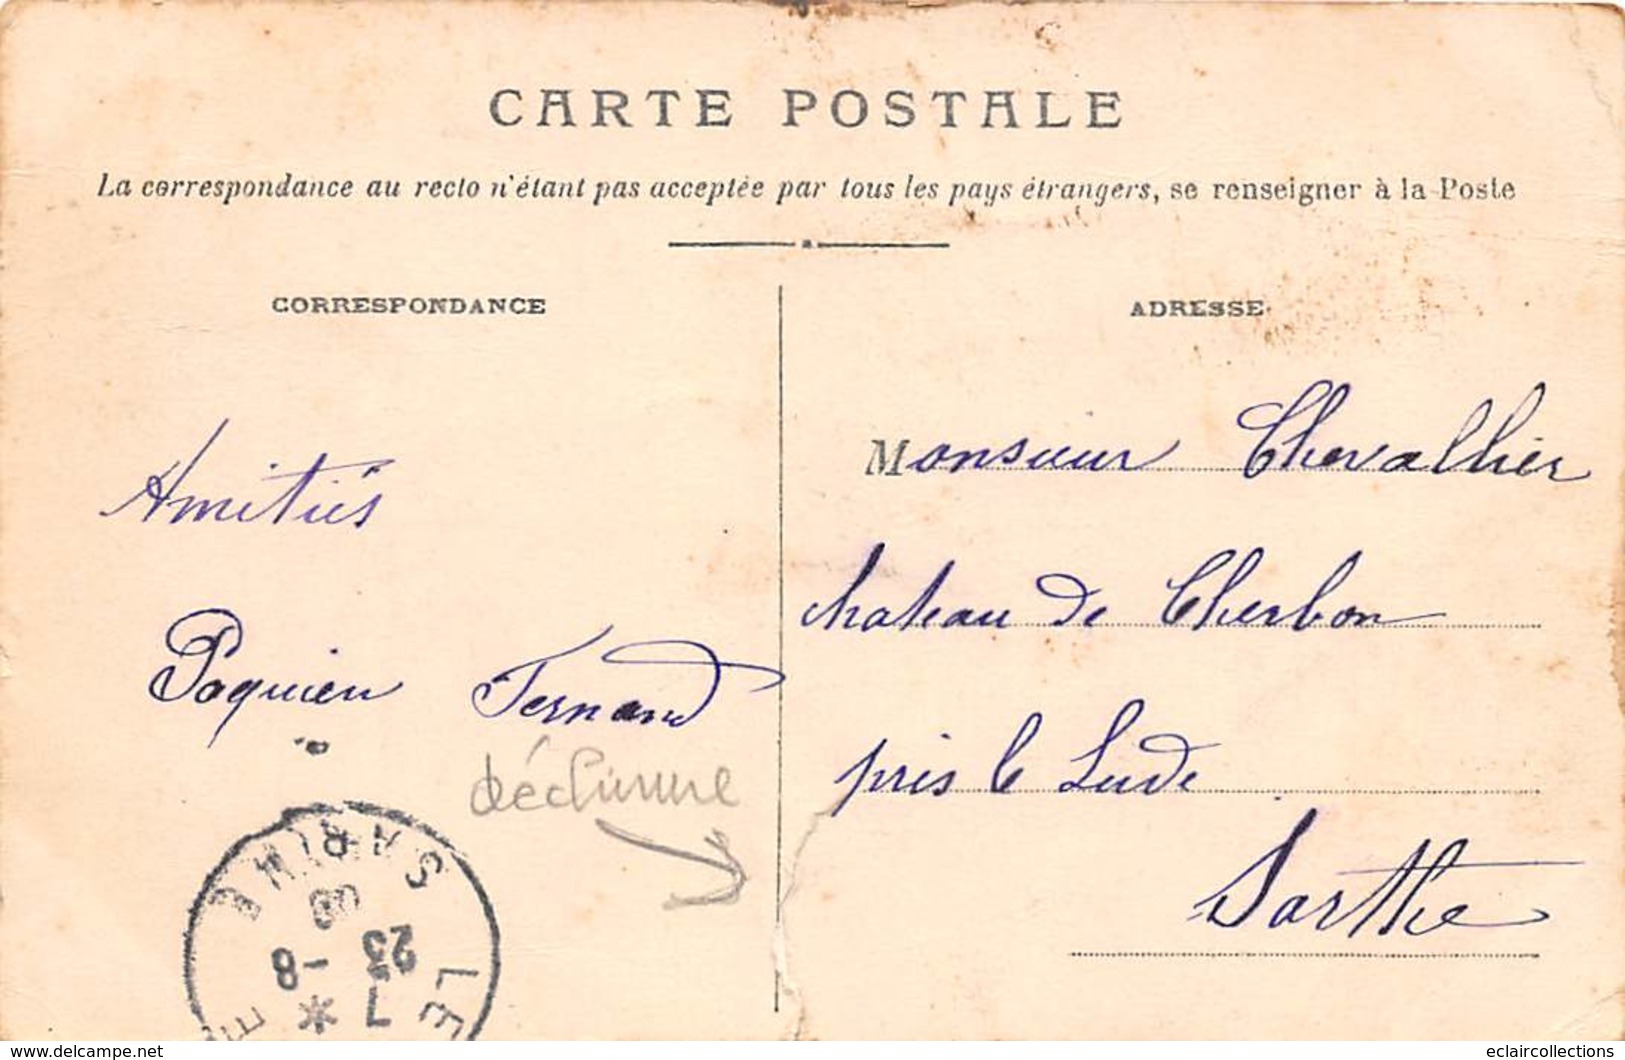 CARTE POSTALE
La correspondance au recto n'étant pas acceptée par tous les pays étrangers, se renseigner à la Poste
CORRESPONDANCE
Amitiés
Paquien Fernand
déchirure
SARTHE
08
23 -8
7 *
LE
E
ADRESSE
Monsieur Chevallier
chateau de Cherbon
près le Lude
Sarthe
delcampe.net
eclaircollections